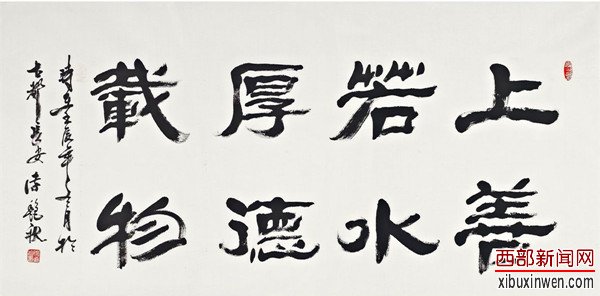 上善
若水
厚德
載物
壬辰年月於
古都長安
西部新闻网
xibuxinwen.com